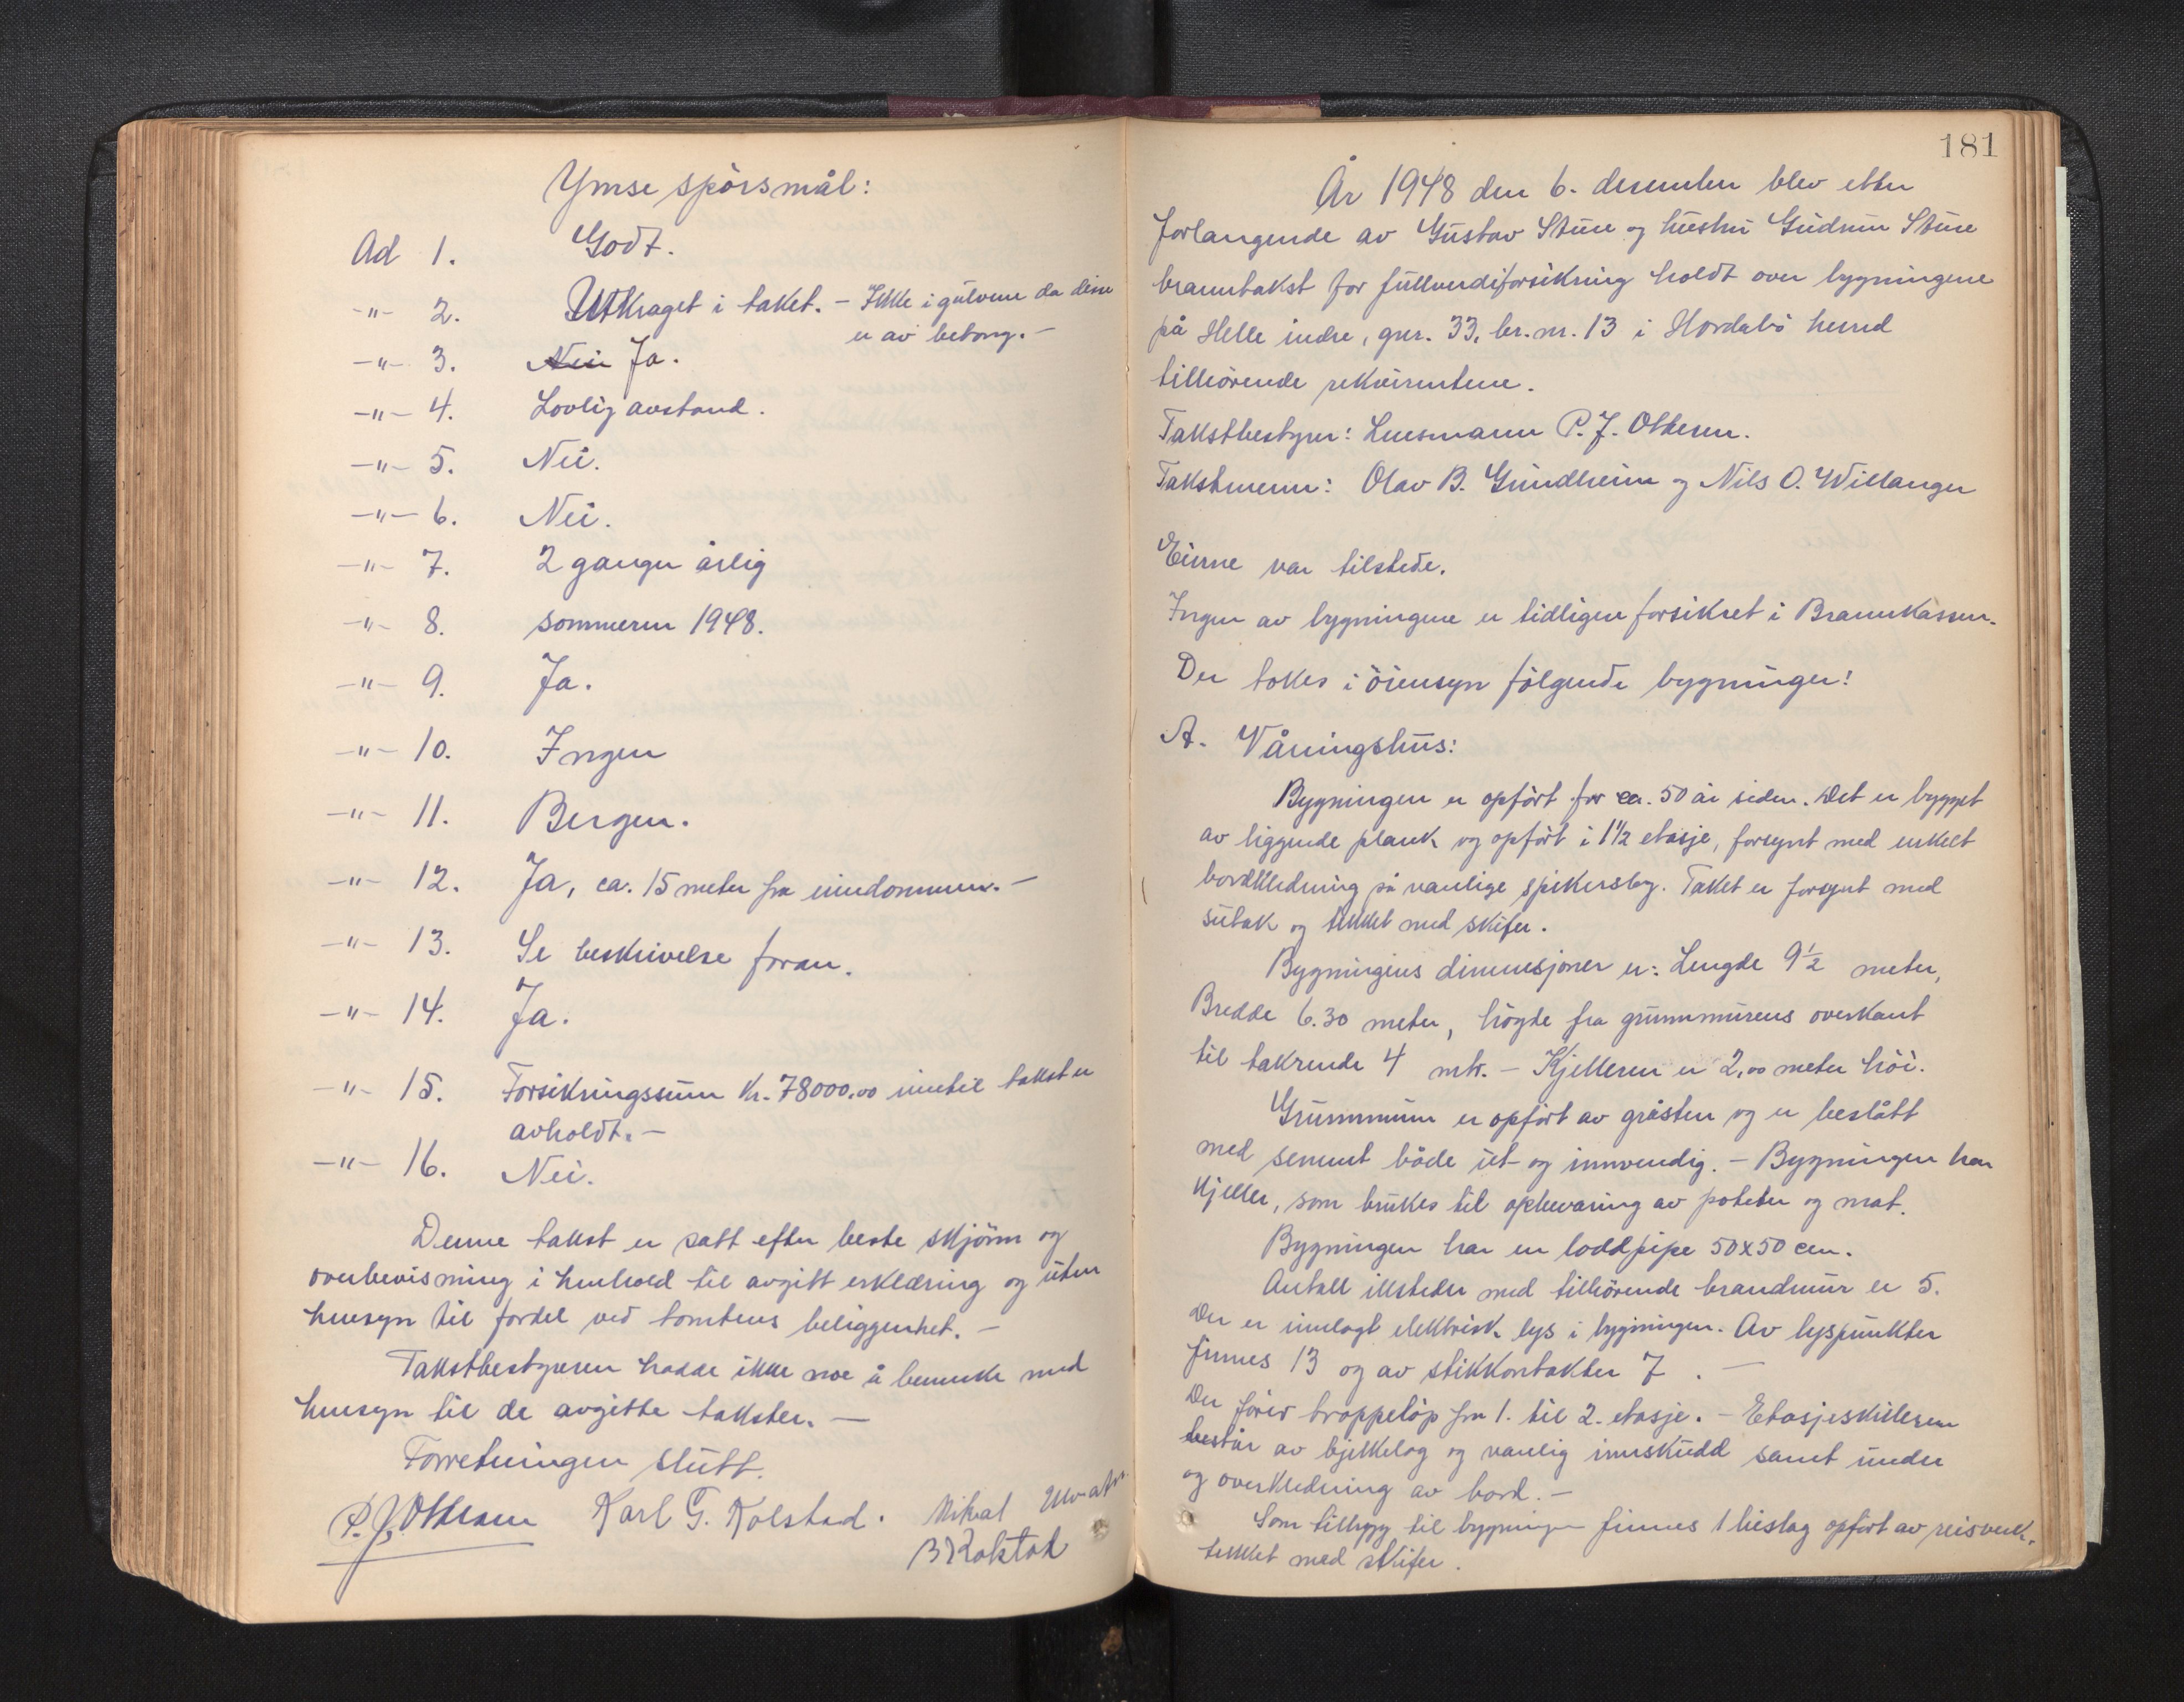 Ymse spörsmål:
Ad 1. Godt.
-"- 2. Utkraget i taket. - Ikke i gulvene da disse
er av betong. -
-"- 3. Nei Ja.
-"- 4. Lovlig avstand.
-"- 5. Nei.
-"- 6. Nei.
-"- 7. 2 ganger årlig
-"- 8. sommeren 1948.
-"- 9. Ja.
-"- 10. Ingen
-"- 11. Bergen.
-"- 12. Ja, ca. 15 meter fra eiendommen. -
-"- 13. Se beskrivelse foran.
-"- 14. Ja.
-"- 15. Forsikringssum Kr. 78000,00 inntil takst er
avholdt. -
-"- 16. Nei.
Denne takst er satt efter beste skjönn og
overbevisning i henhold til avgitt erklæring og uten
hensyn til fordel ved tomtens beliggenhet. -
Takstbestyreren hadde ikke noe å bemerke med
hensyn til de avgitte takster. -
Forretningen slutt.
P. J. Ottesen Karl G. Kolstad. Mikal
B Kolstad
181
År 1948 den 6. desember blev etter
forlangende av Gustav Sture og hustru Gudrun Sture
branntakst for fullverdiforsikring holdt over bygningene
på Helle indre, gnr. 33, br. nr. 13 i Hordabö herred
tilhörende rekvirentene.
Takstbestyrer: Lensmann P. J. Ottesen.
Takstmenn: Olav B. Grindheim og Nils O. Willanger
Eierne var tilstede.
Ingen av bygningene er tidligere forsikret i Brannkassen.
Der tokes i öiensyn fölgende bygninger!
A. Våningshus:
Bygningen er opfört for ca. 50 år siden. Det er bygget
av liggende plank og opfört i 1 1/2 etasje, forsynt med enkelt
bordkledning på vanlige spikerslag. Taket er forsynt med
sutak og tekket med skifer.
Bygningens dimmesjoner er: Lengde 9 1/2 meter,
Bredde 6.30 meter, högde fra grunnmurens overkant
til takrende 4 mtr. - Kjelleren er 2,00 meter höi.
Grunnmuren er opfört av gråsten og er beslått
med sement både ut- og innvendig. - Bygningen har
kjeller, som brukes til opbevaring av poteter og mat.
Bygningen har en loddpipe 50x50 cm.
Antall illsteder med tilhörende brandmur er 5.
Der er innlagt elektrisk lys i bygningen. Av lyspunkter
finnes 13 og av stikkontakter 7. -
Der förer troppelöp fra 1. til 2. etasje. - Etasjeskilleren
består av bjelkelag og vanlig innskudd samt under
og overkledning av bord. -
Som tilbygg til bygningen finnes 1 bislag opfört av reisverk,
tekket med skifer.